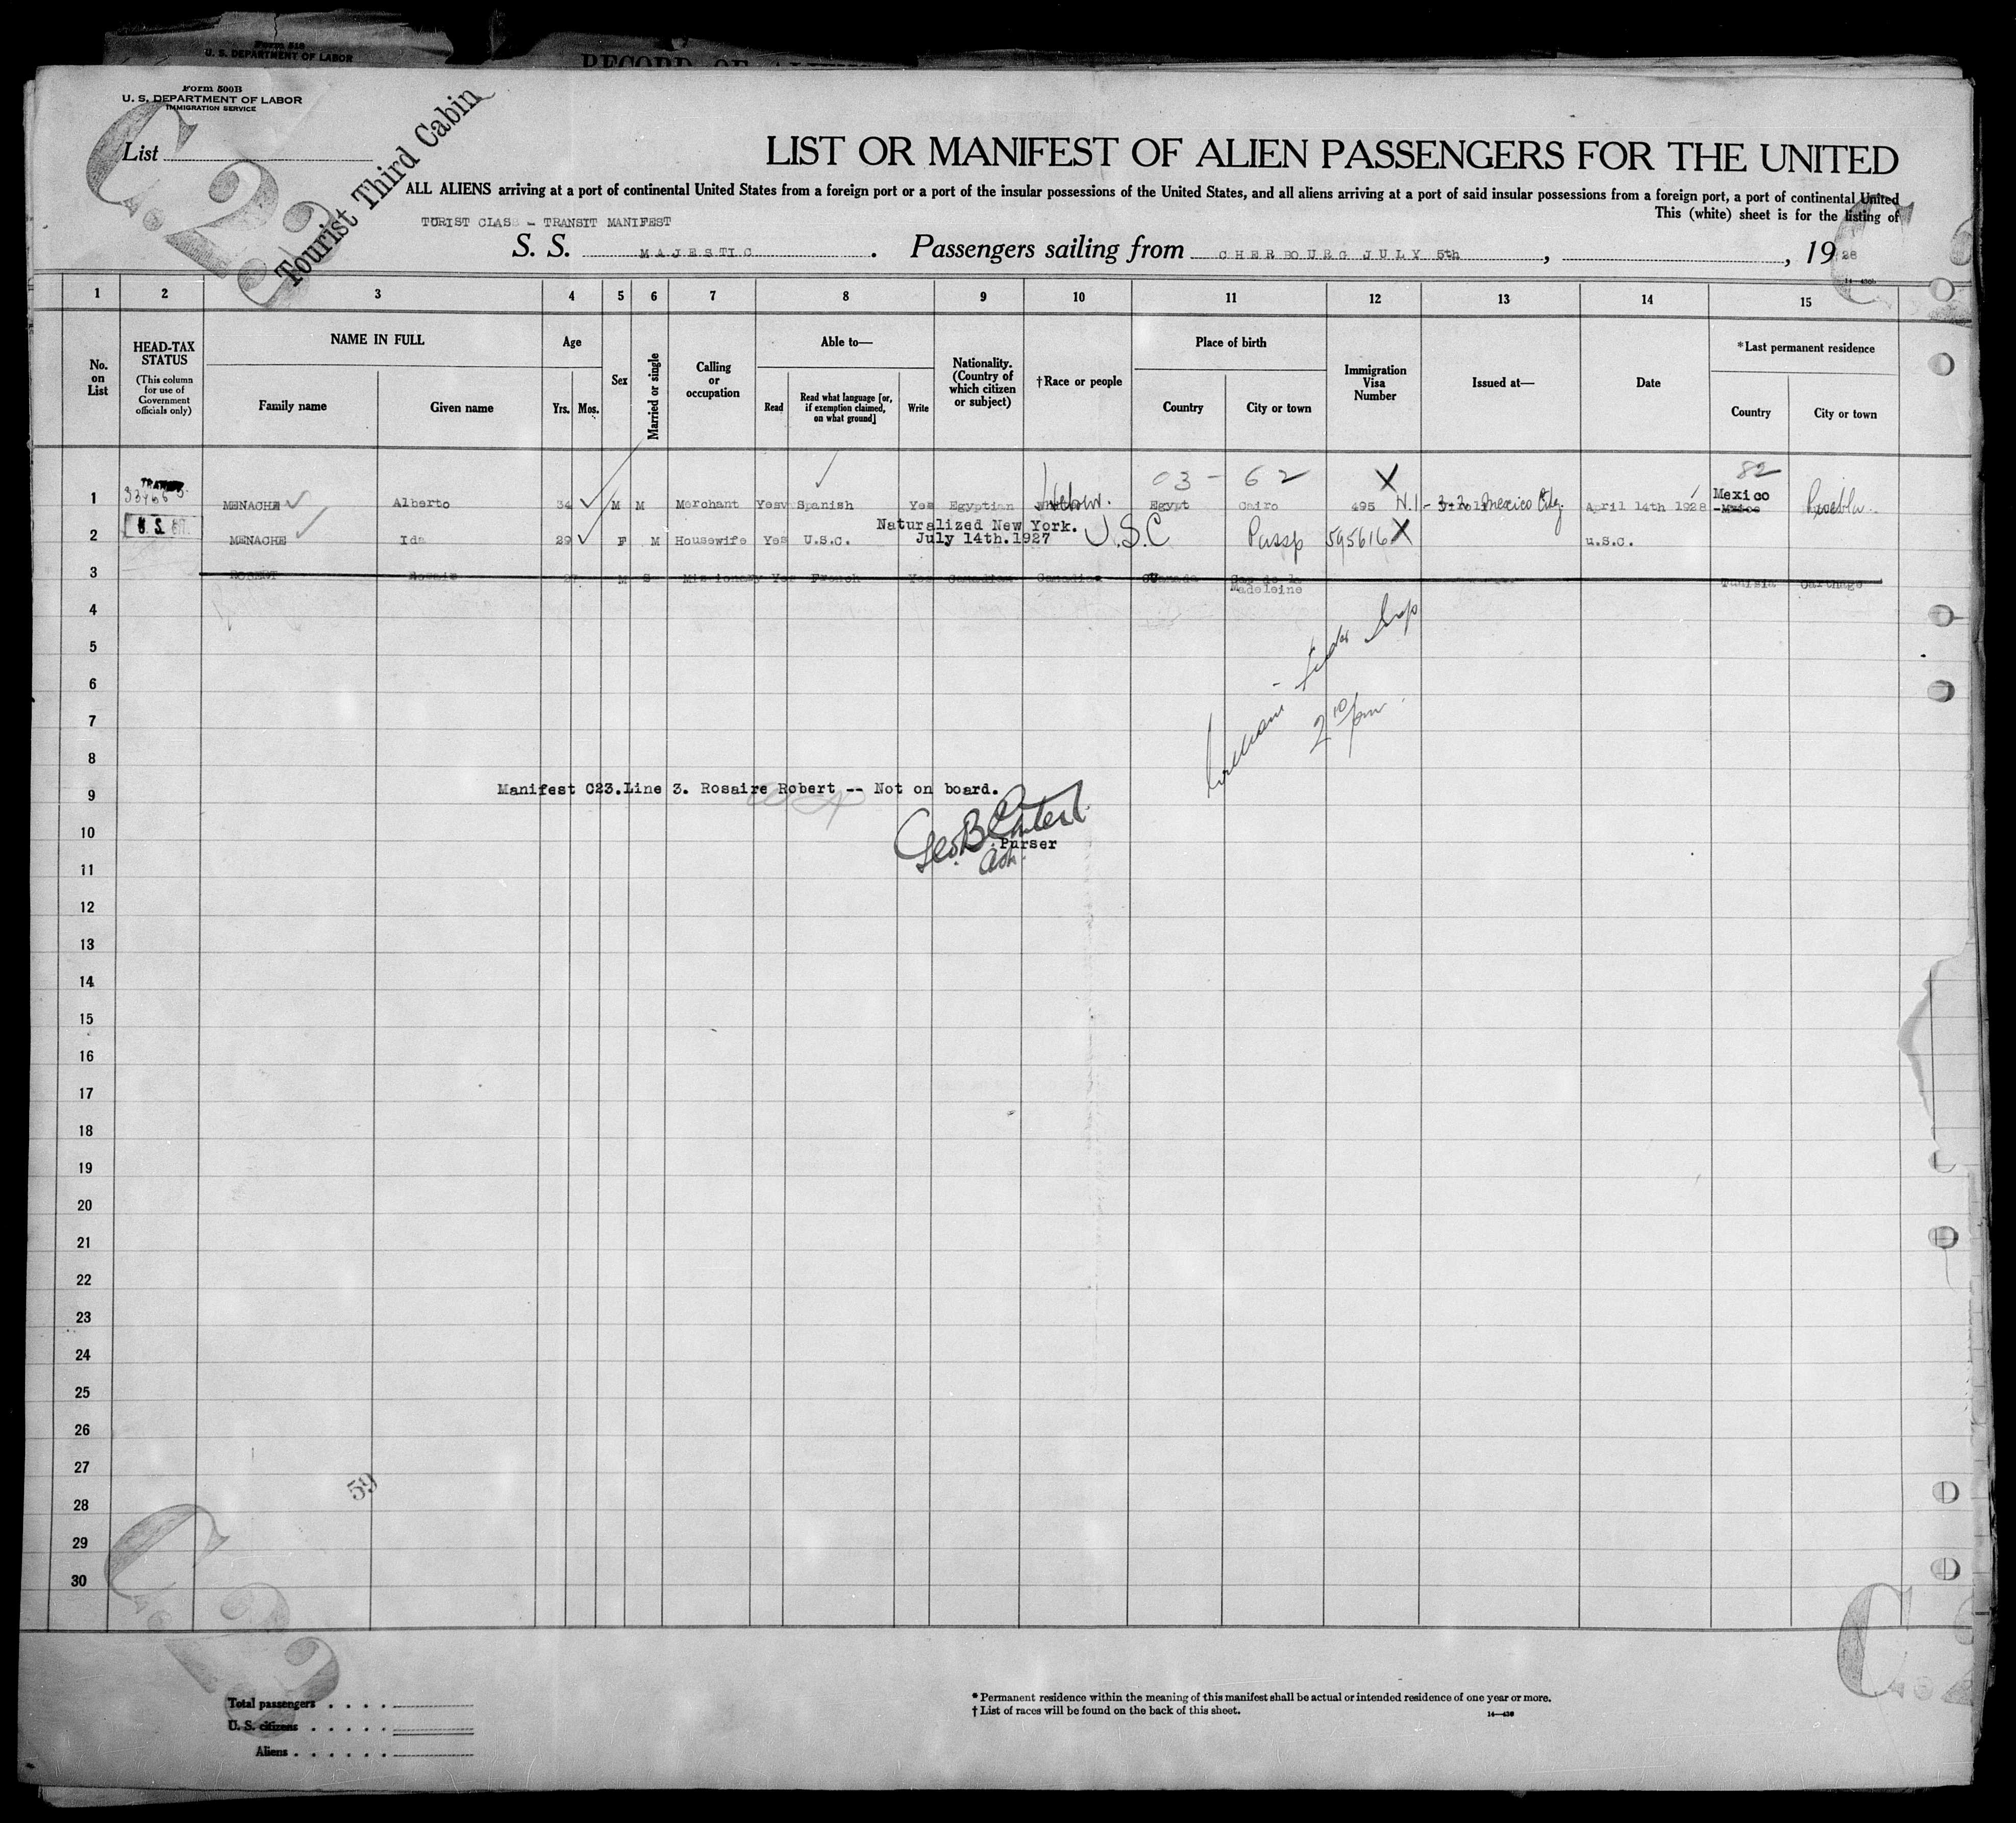 Form 510
U. S. DEPARTMENT OF LABOR
RECORD OF
Form 500B
U. S. DEPARTMENT OF LABOR
IMMIGRATION SERVICE
List
C 23
Tourist Third Cabin
LIST OR MANIFEST OF ALIEN PASSENGERS FOR THE UNITED
ALL ALIENS arriving at a port of continental United States from a foreign port or a port of the insular possessions of the United States, and all aliens arriving at a port of said insular possessions from a foreign port, a port of continental United
This (white) sheet is for the listing of
TOURIST CLASS - TRANSIT MANIFEST
S. S. MAJESTIC . Passengers sailing from CHERBOURG JULY 5th , , 19 28
1 2 3 4 5 6 7 8 9 10 11 12 13 14 15
No. on List
HEAD-TAX STATUS
(This column for use of Government officials only)
NAME IN FULL
Family name Given name
Age
Yrs. Mos.
Sex
Married or single
Calling or occupation
Able to—
Read Read what language [or, if exemption claimed, on what ground] Write
Nationality. (Country of which citizen or subject)
†Race or people
Place of birth
Country City or town
Immigration Visa Number
Issued at—
Date
*Last permanent residence
Country City or town
03 - 62 82
1 MENACHE Alberto 34 M M Merchant Yes Spanish Yes Egyptian Hebrew. Egypt Cairo 495 Mexico City April 14th 1928 Mexico Puebla
Naturalized New York.
2 U. S. MENACHE Ida 29 F M Housewife Yes U.S.C. July 14th.1927 U.S.C Passp 595616 U.S.C.
3 ROBERT Rosaire 27 M S Missionary Yes French Yes Canadian Canadian Canada Cap de la Madeleine Tunisia Carthage
4
5
6
7
2 10 pm
8
Manifest C23.Line 3. Rosaire Robert -- Not on board.
9
10
Purser
11
12
13
14
15
16
17
18
19
20
21
22
23
24
25
26
27
59
28
29
30
C 23
Total passengers
U. S. citizens
Aliens
* Permanent residence within the meaning of this manifest shall be actual or intended residence of one year or more.
† List of races will be found on the back of this sheet.
14—430